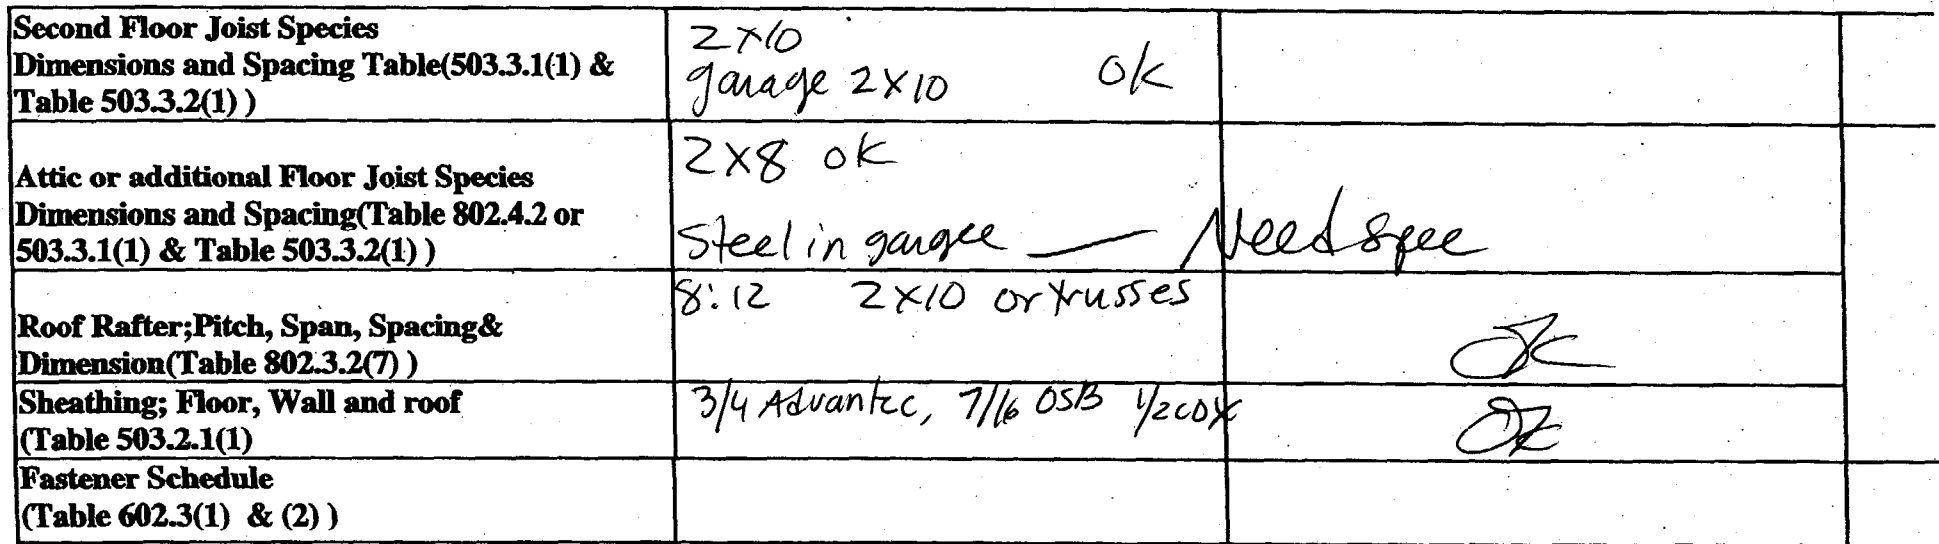 Second Floor Joist Species
Dimensions and Spacing Table(503.3.1(1) &
Table 503.3.2(1) )
2x10
garage 2x10 ok
Attic or additional Floor Joist Species
Dimensions and Spacing(Table 802.4.2 or
503.3.1(1) & Table 503.3.2(1) )
2x8 ok
Steel in gargee — Need spec
Roof Rafter;Pitch, Span, Spacing&
Dimension(Table 802.3.2(7) )
8:12 2x10 or trusses
OK
Sheathing; Floor, Wall and roof
(Table 503.2.1(1)
3/4 Advantec, 7/16 OSB 1/2 CDX
OK
Fastener Schedule
(Table 602.3(1) & (2) )